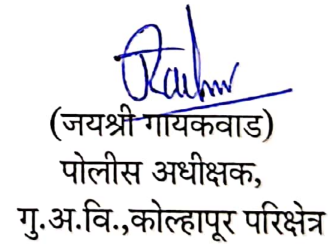 (जयश्री गायकवाड)
पोलीस अधीक्षक,
गु.अ.वि.,कोल्हापूर परिक्षेत्र